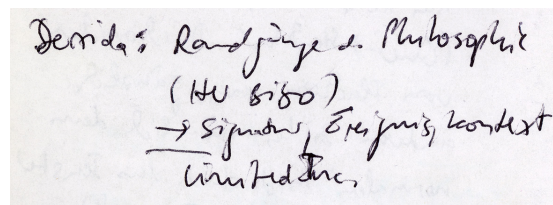 Derrida: Randgänge d. Philosophie
(HU Bibo)
→ Signatur, Ereignis, Kontext
Limited Inc.